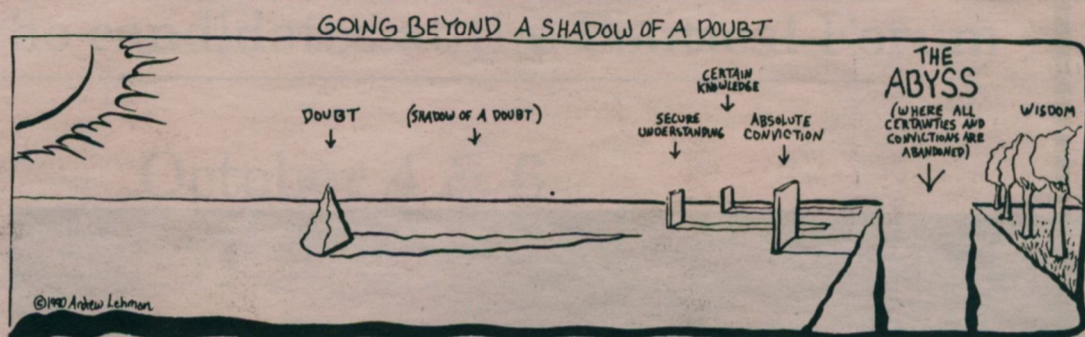 GOING BEYOND A SHADOW OF A DOUBT
DOUBT
(SHADOW OF A DOUBT)
SECURE
UNDERSTANDING
CERTAIN
KNOWLEDGE
ABSOLUTE
CONVICTION
THE
ABYSS
(WHERE ALL
CERTAINTIES AND
CONVICTIONS ARE
ABANDONED)
WISDOM
©1990 Andrew Lehman